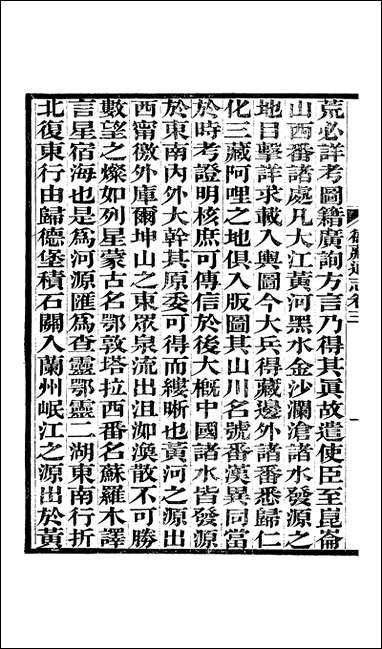 荒必詳考圖籍廣詢方言乃得其眞故遣使臣至崑崙
衛藏通志卷三
山西番諸處凡大江黃河黑水金沙瀾滄諸水發源之
地目擊詳求載入輿圖今大兵得藏邊外諸番悉歸仁
化三藏阿哩之地俱入版圖其山川名號番漢異同當
於時考證明核庶可傳信於後大槪中國諸水皆發源
於東南內外大幹其原委可得而縷晰也黃河之源出
西甯徼外庫爾坤山之東眾泉流出沮洳渙散不可勝
數望之燦如列星蒙古名鄂敦塔拉西番名蘇羅木譯
言星宿海也是爲河源匯爲查靈鄂靈二湖東南行折
北復東行由歸德堡積石關入蘭州岷江之源出於黃